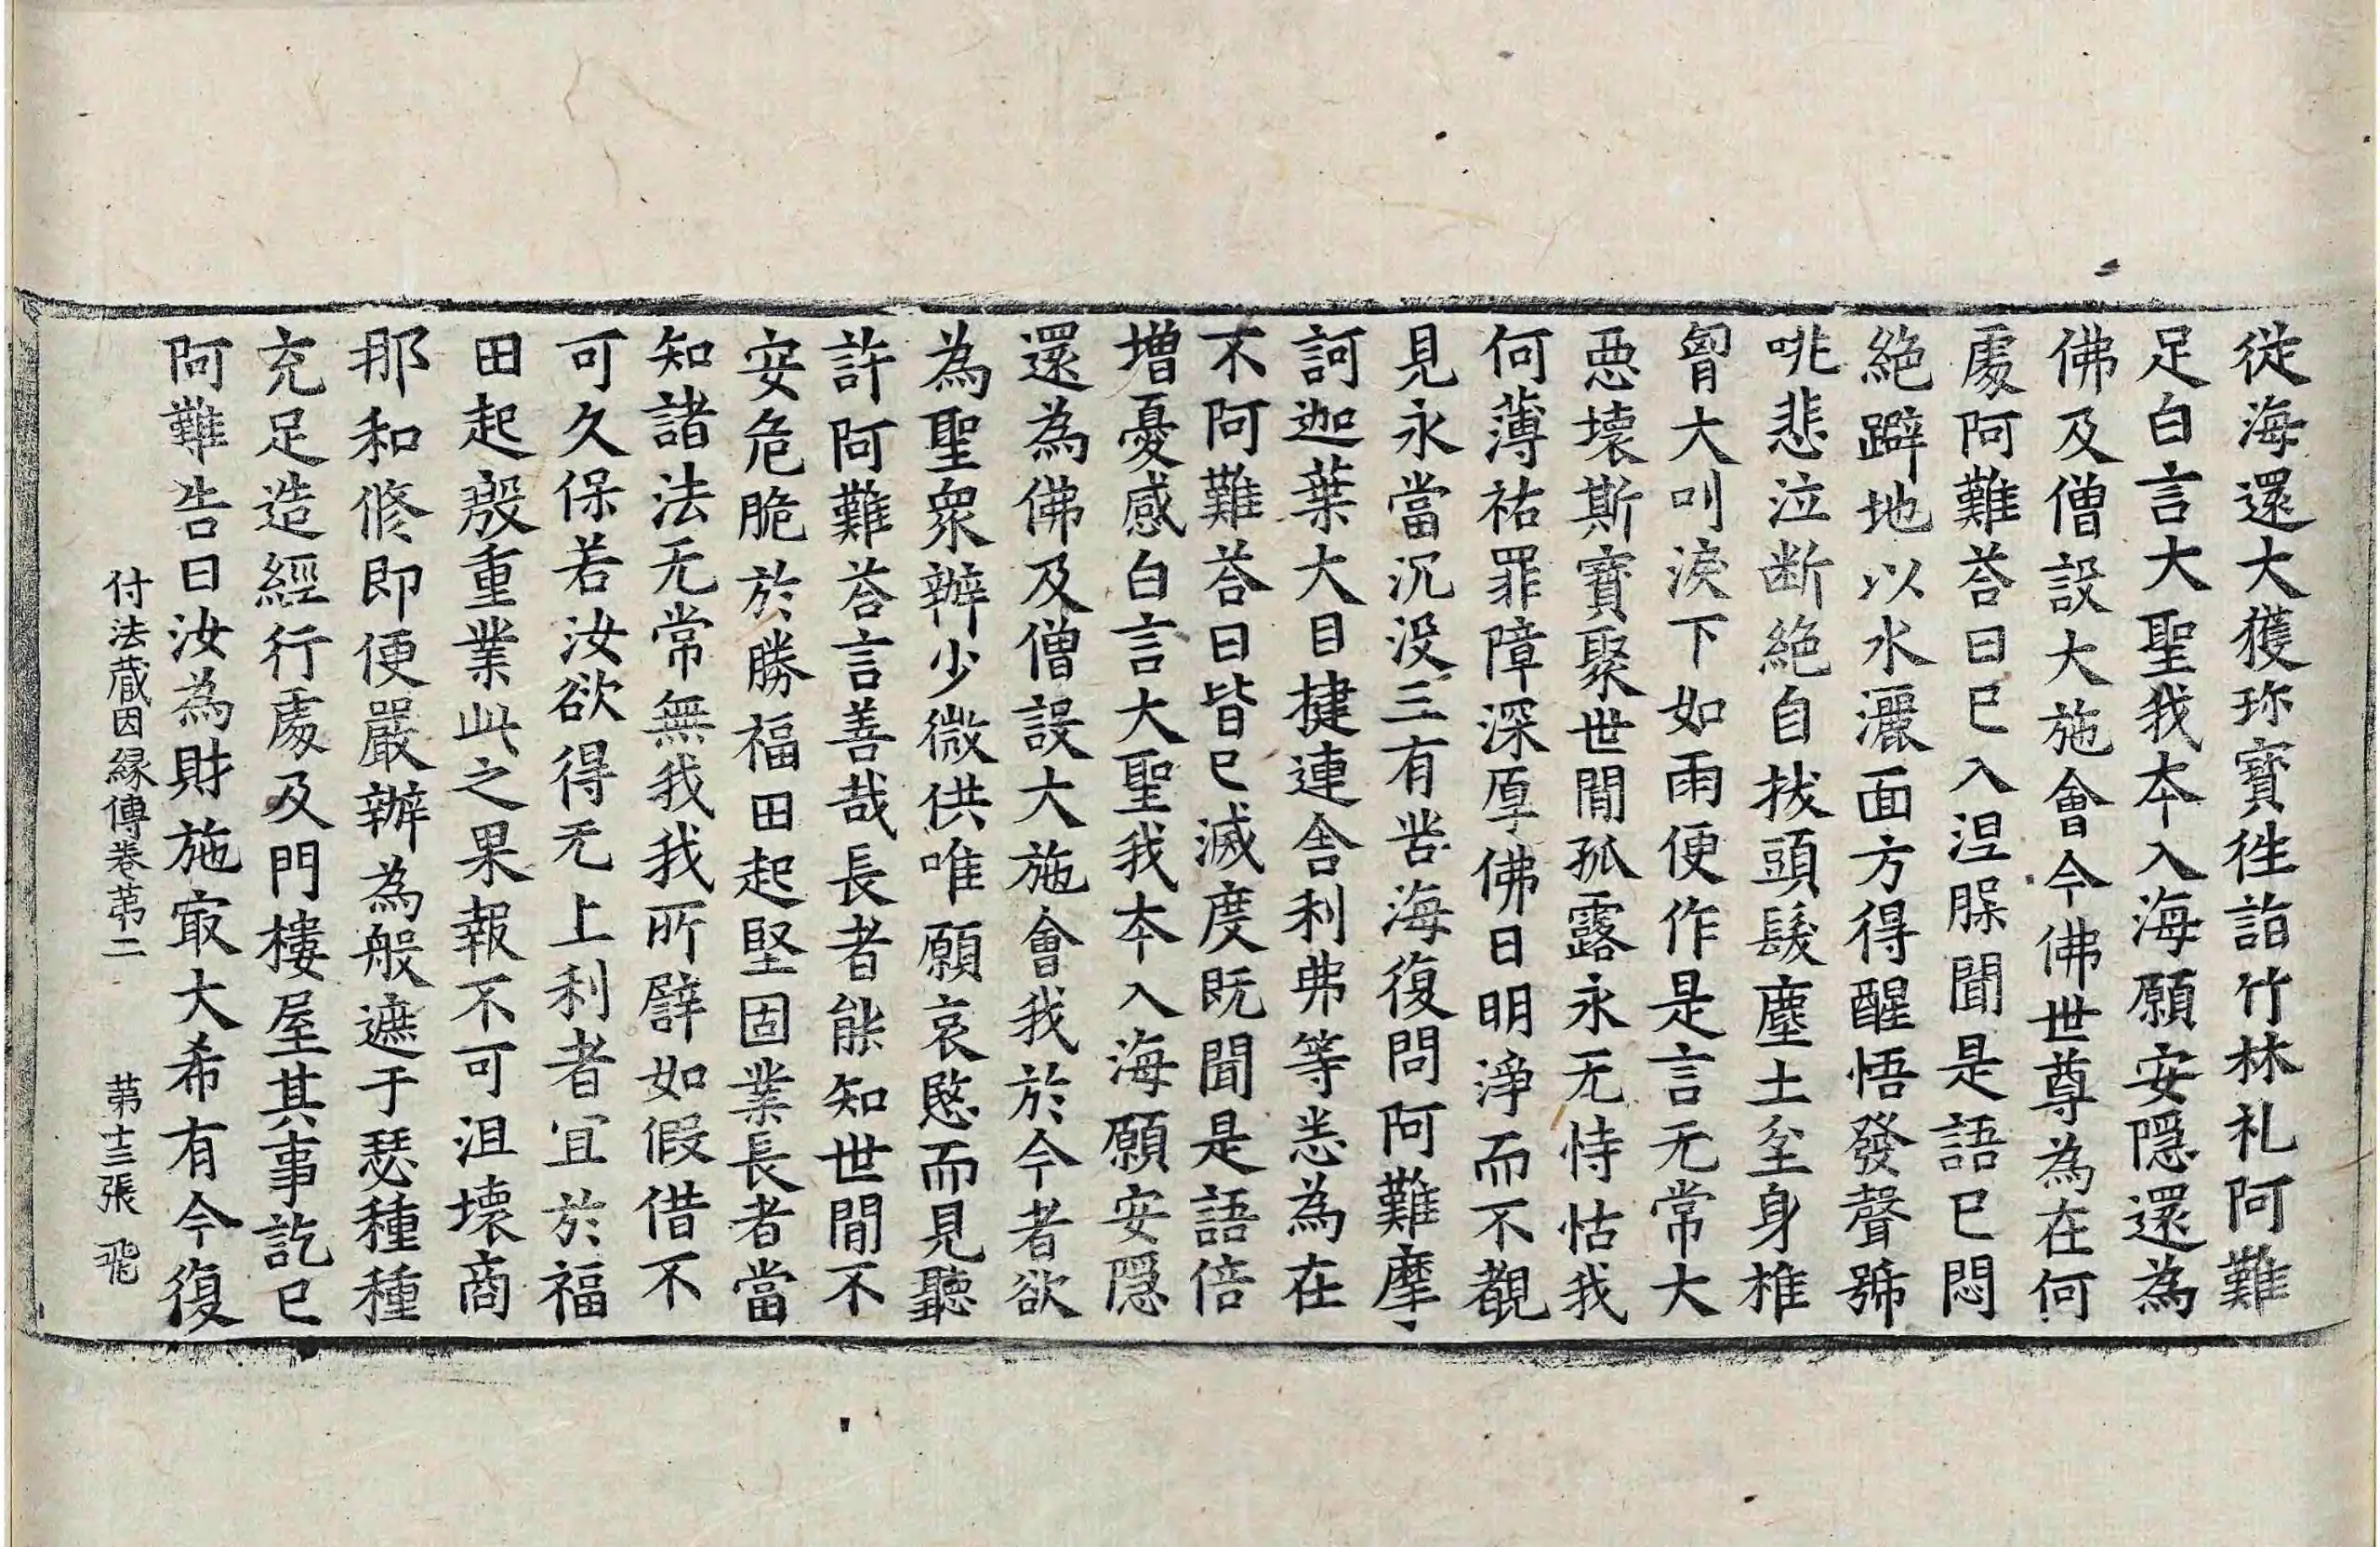 從海還大獲珎寶徃詣竹林礼阿難
足白言大聖我夲入海願安隱還為
佛及僧設大施會今佛世尊為在何
處阿難荅曰已入涅躶聞是語已悶
絕躃地以水灑面方得醒悟發聲號
咷悲泣断絕自拔頭髮塵土坌身椎
胷大叫淚下如雨便作是言无常大
惡壞斯寶聚世閒孤露永无恃怙我
何薄祐罪障深厚佛日明淨而不覩
見永當沉没三有苦海復問阿難摩
訶迦葉大目揵連舍利弗等悉為在
不阿難荅曰皆已滅度既聞是語倍
增憂慼白言大聖我夲入海願安隱
還為佛及僧設大施會我於今者欲
為聖衆辦少微供唯願哀愍而見聽
許阿難荅言善哉長者能知世閒不
安危脆於勝福田起堅固業長者當
知諸法无常無我我所譬如假借不
可久保若汝欲得无上利者宜於福
田起殷重業此之果報不可沮壞商
那和修即便嚴辦為般遮于瑟種種
充足造經行處及門樓屋其事訖已
阿難告曰汝為財施㝡大希有今復
付法蔵因縁傳卷苐二 苐十三張 飛